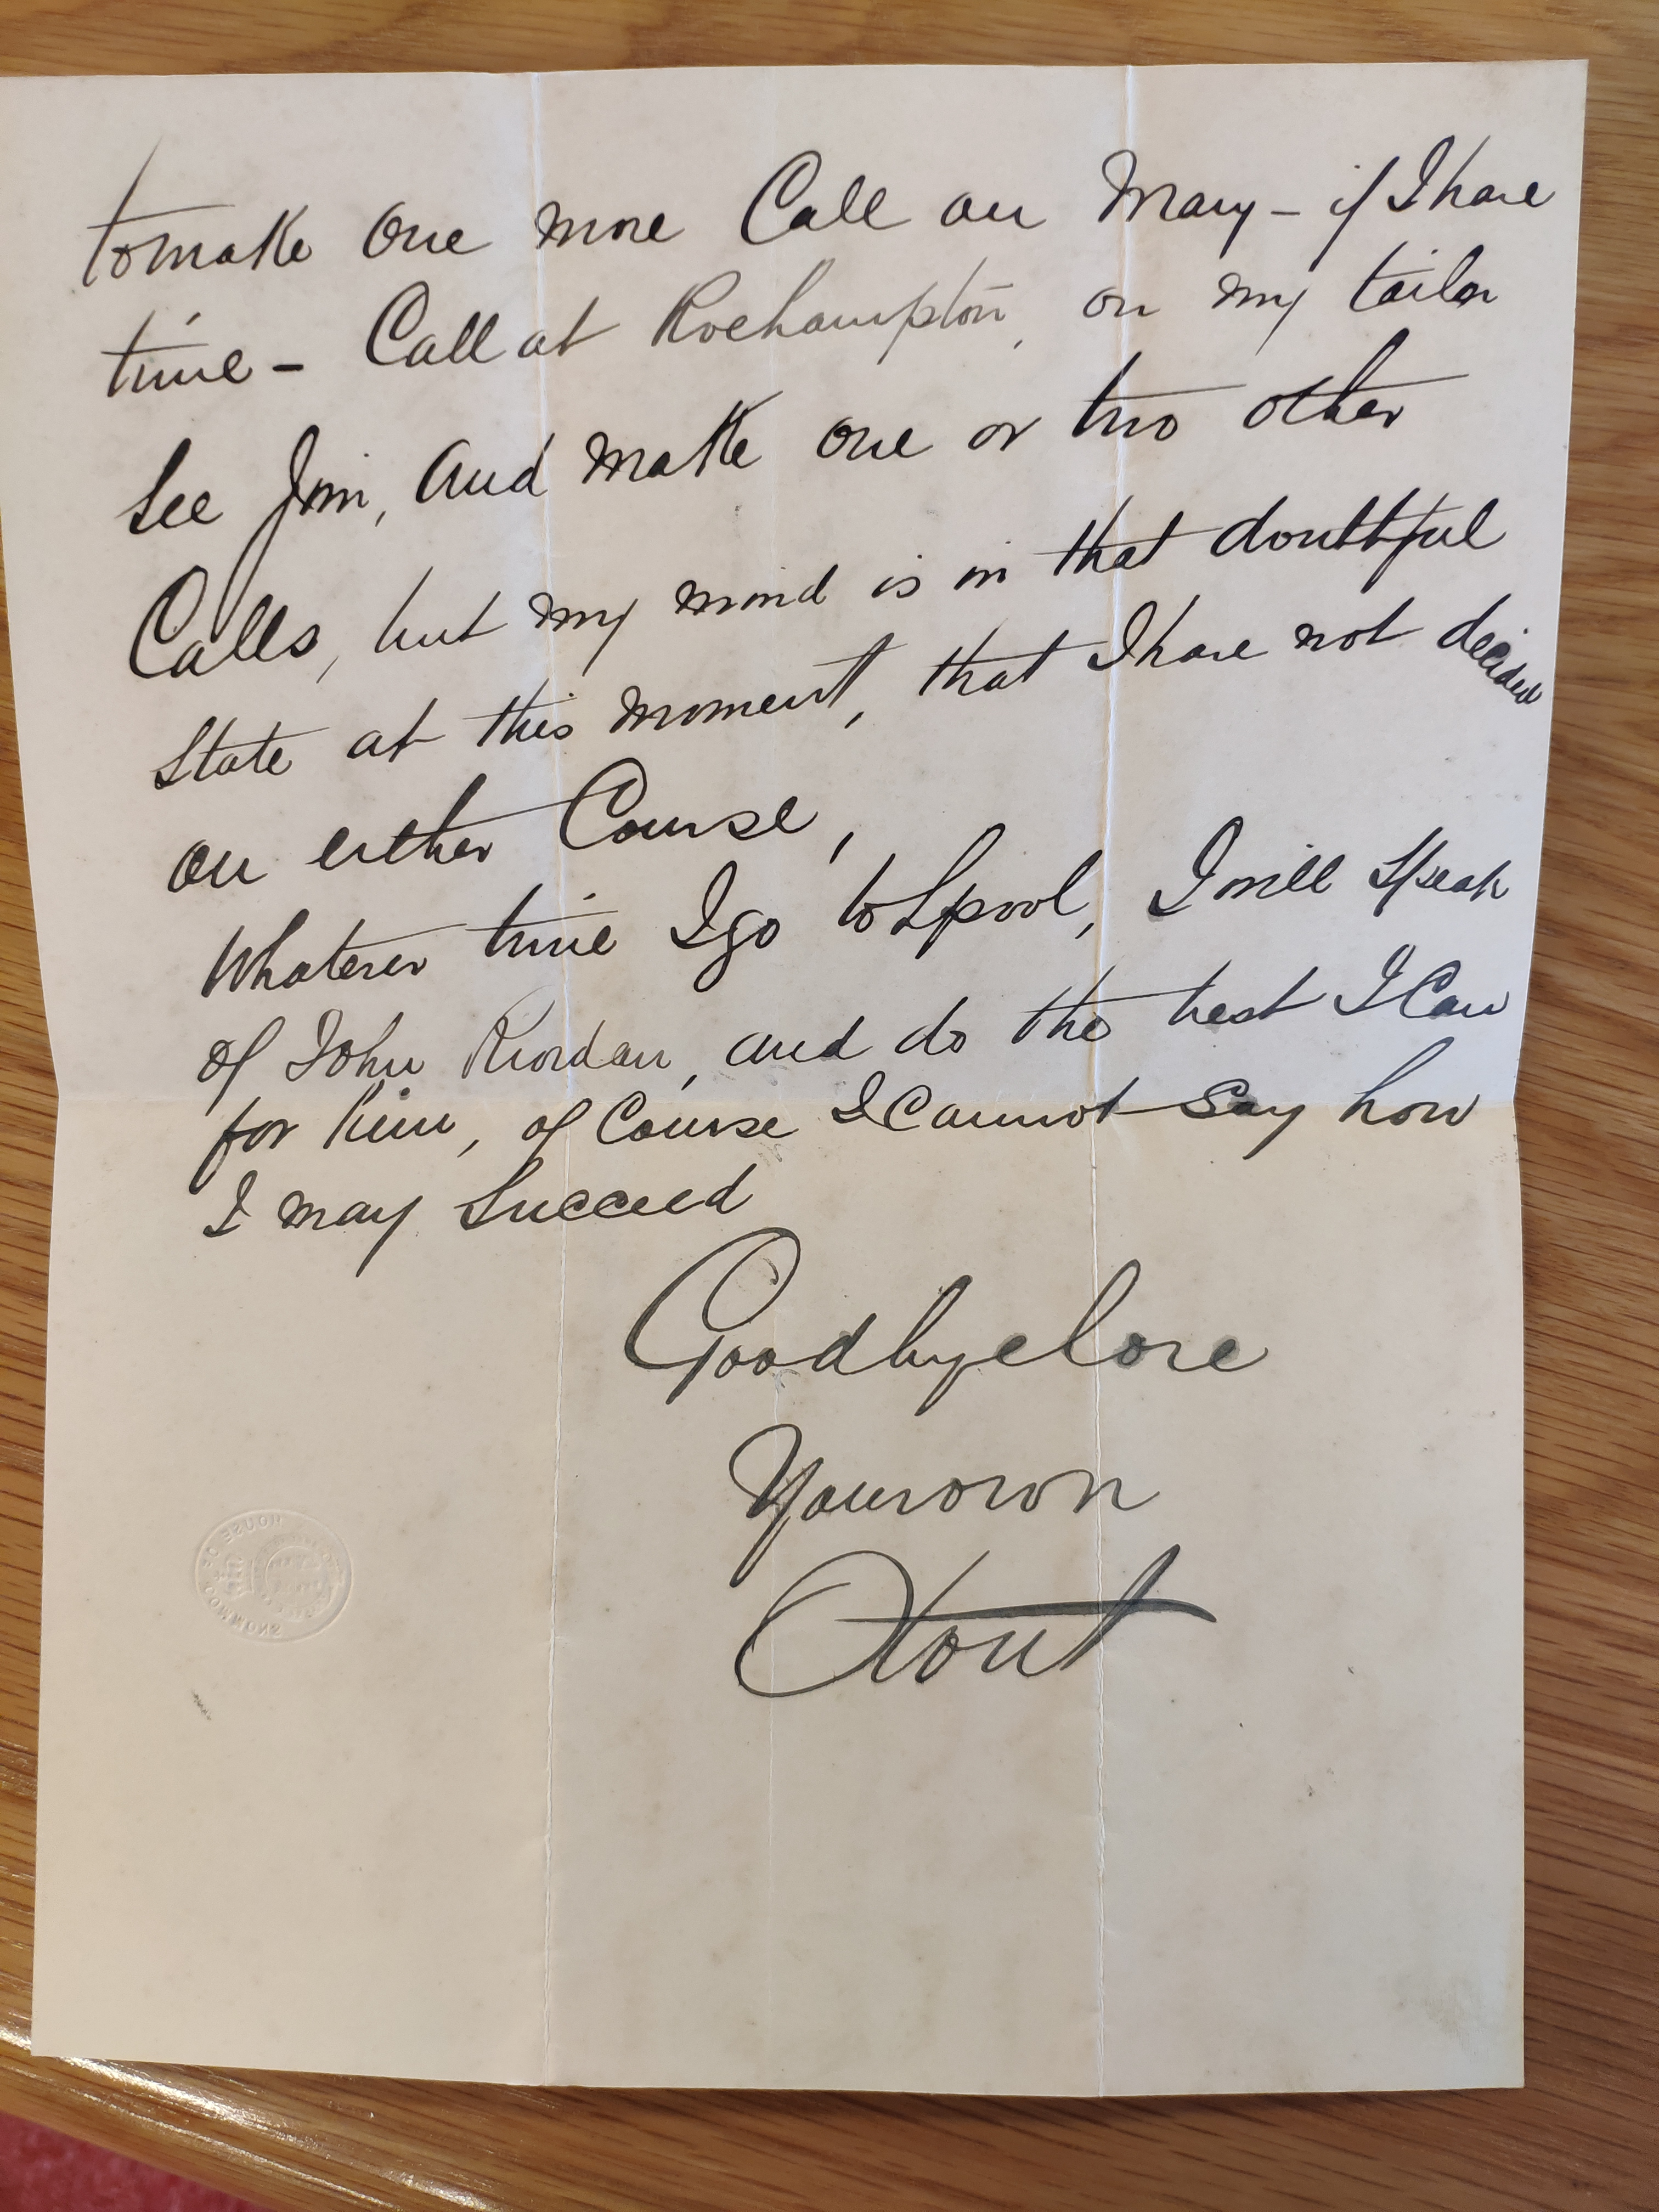 to make One more Call on Mary - if I have
time - Call at Roehampton, on my tailor
See Jim, And make one or two other
Calls, but my mind is in that doubtful
State at this moment, that I have not decided
on either Course,
Whatever time I go to Lpool, I will speak
of John Riordan, and do the best I Can
for him, of Course I Cannot Say how
I may Succeed
Goodbye love
Your own
HOUSE OF COMMONS